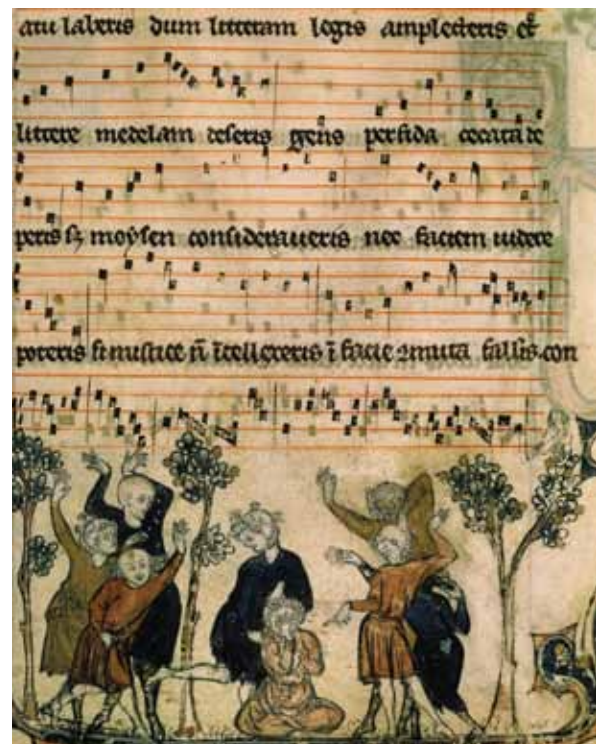 atu laberis dum litteram legis amplecteris et
littere medelam deseris gens perfida cecata de
peris sꝫ moẏsen consideraueris nec faciem uidere
poteris si mistice n̄ ītellexeris ī facie ꝯmuta fallis con